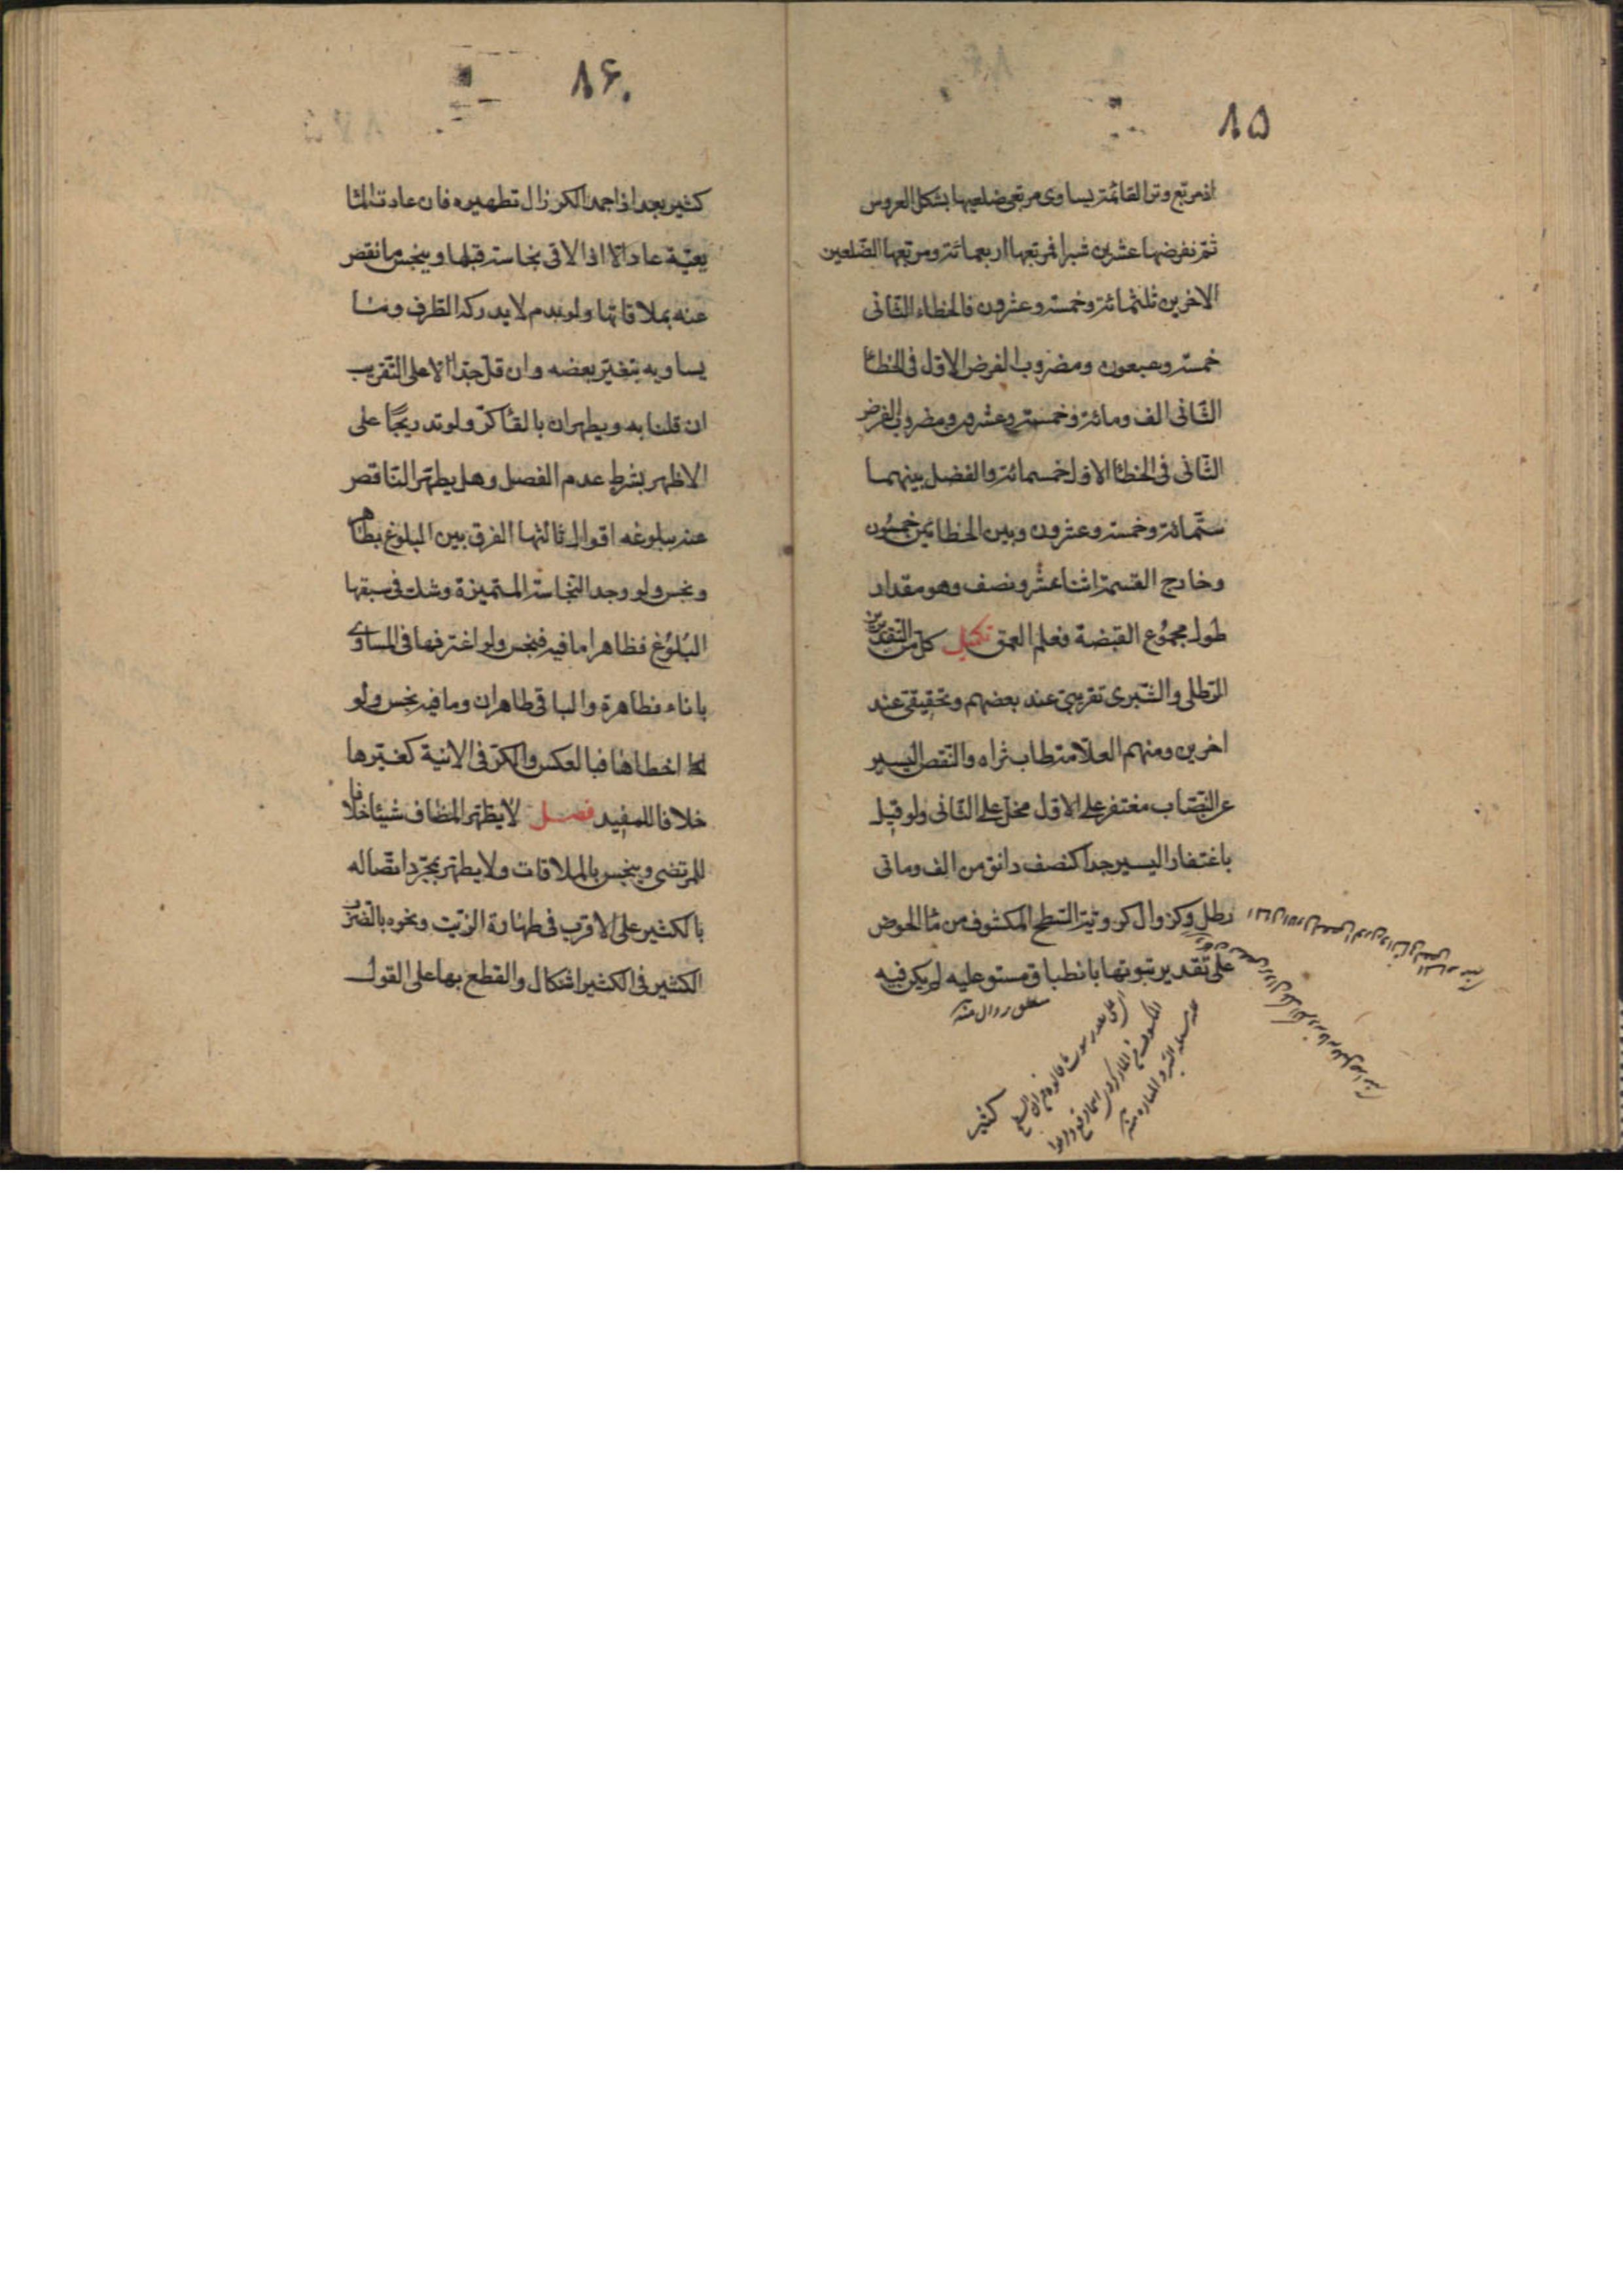 ٨۵
اذ مربّع وتر القائمة يساوى مربّعى ضلعيها بشكل العروس
ثمّ نفرضها عشرين شبرا فمربّعها اربعمائة ومربّعها الضّلعين
الاخرين ثلثمائة وخمسة وعشرون فالخطاء الثّانى
خمسة وسبعون ومضروب الفرض الاوّل فى الخطا
الثّانى الف ومائة وخمسة وعشرون ومضروب الفرض
الثّانى فى الخطا الاول خمسمائة والفضل بينهما
ستّمائة وخمسة وعشرون وبين الخطايمن خمسون
وخارج القسمة اثناعشر ونصف وهو مقدار
طول مجموع القبضة فعلم العمق تكميل كلّ من التقديرين
الرّطلى والشّبرى تقريبىّ عند بعضهم وتحقيقىّ عند
اخرين ومنهم العلّامة طاب ثراه والنّقص اليسير
عن النّصاب مغتفر على الاوّل مخلّ على الثّانى ولو قيل
باغتفار اليسير جدا كنصف دانق من الف ومأتى
رطل وكزوال كرويّة السّطح المكشوف من ماء الحوض
على تقدير ثبوتها بانطباق مستو عليه لم يكن فيه
كثير
٨۶
كثير بعد اذا جمد الكر زال تطهيره فان عادت المائية
عاد الّا اذا لاقى نجاسة قبلها وينجس ما نقص
عنه بملاقاتها ولو بدم لا يدركه الطّرف وما
يساويه بتغيّر بعضه وان قلّ جدّا الّا على التّقريب
ان قلنا به ويطهران بالقاء كرّ ولو تدريجًا على
الاظهر بشرط عدم الفصل وهل يطهّر النّاقص
عند بلوغه اقوال ثالثها الفرق بين البلوغ بطاهر
ونجس ولو وجد النّجاسة المتميزة وشك فى سبقها
البلوغ فظاهر اما فيه فنجس ولو اغترفها فى المساوى
باناء فظاهره والباقى طاهران وما فيه نجس ولو
اخطاها فبالعكس والكرّ فى الانية كغيرها
خلافا للمفيد فصل لا يطهّر المضاف شيئا خلافا
للمرتضى وينجس بالملاقات ولا يطهر بمجرّد اتّصاله
بالكثير على الاقرب فى طهارة الزّيت ونحوه بالضّرب
الكثير فى الكثير اشكال والقطع بها على القول